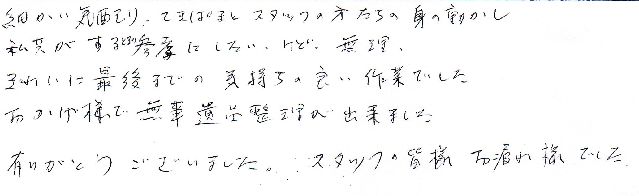 細かい気配り、てきぱきとスタッフの方たちの身の動かし
私共がする時参考にしたいけど、無理、
きれいに最後までの気持ちの良い作業でした
おかげ様で無事遺品整理が出来ました
有りがとうございました。スタッフの皆様お疲れ様でした。